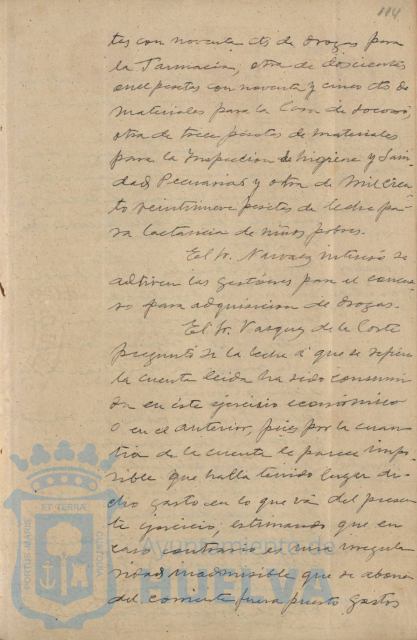 114.
tas con noventa cts de drogas para
la Farmacia, otra de doscientas
once pesetas con noventa y cinco cts de
materiales para la Casa de socorro,
otra de trece pesetas de materiales
para la Inspeccion de higiene y Sani-
dad Pecuarias y otra de mil cien-
to veintinueve pesetas de leche pa-
ra lactancia de niños pobres.
El Sr. Narvaez interesó se
activen las gestiones para el concur-
so para adquisicion de drogas.
El Sr. Vazquez de la Corte
preguntó si la leche á que se refiere
la cuenta leida ha sido consumi-
da en éste ejercicio económico
o en el anterior, pues por la cuan-
tia de la cuenta le parece impo-
sible que halla tenido lugar di-
cho gasto en lo que vá del presen-
te ejercicio, estimando que en
caso contrario es una irregula-
ridad inadmisible que se abonen
del corriente presupuesto gastos
PORTUS MARIS
ET TERRAE
CUSTODIA
Ayuntamiento de
HUELVA